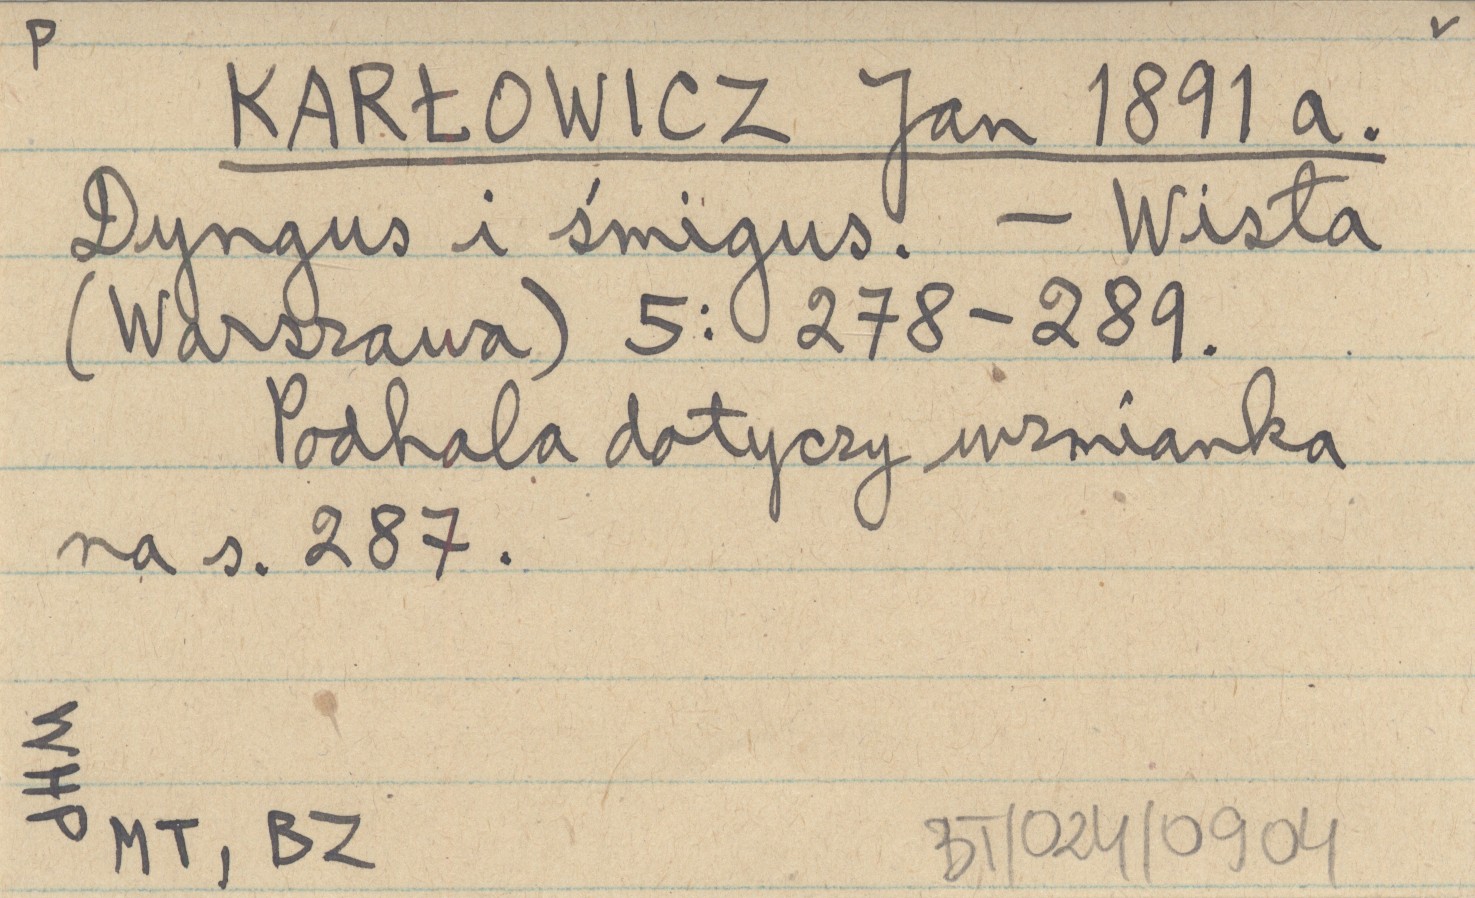 P v
KARŁOWICZ Jan 1891 a.
Dyngus i śmigus. – Wisła
(Warszawa) 5: 278–289.
Podhala dotyczy wzmianka
na s. 287.
WHP
MT, BZ
BT/024/0904